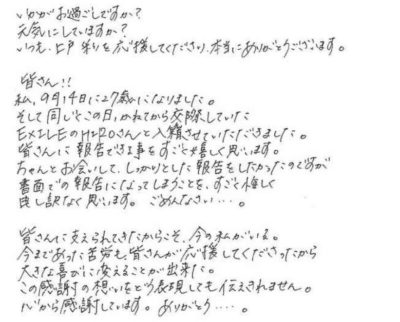 いかがお過ごしですか?
元気にしていますか?
いつも、上戸 彩を応援してくださり、本当にありがとうございます。
皆さん!!
私、9月14日に27歳になりました。
そして同じくこの日、かねてから交際していた
EXILEのHIROさんと入籍させていただきました。
皆さんに報告できる事をすごく嬉しく思います。
ちゃんとお会いして、しっかりとした報告をしたかったのですが
書面での報告になってしまうことを、すごく悔しく
申し訳なく思います。 ごめんなさい…。
皆さんに支えられてきたからこそ、今の私がいる。
今まであった苦労も、皆さんが応援してくださったから
大きな喜びに変えることが出来た。
この感謝の想いをどう表現しても伝えきれません。
心から感謝しています。 ありがとう…。